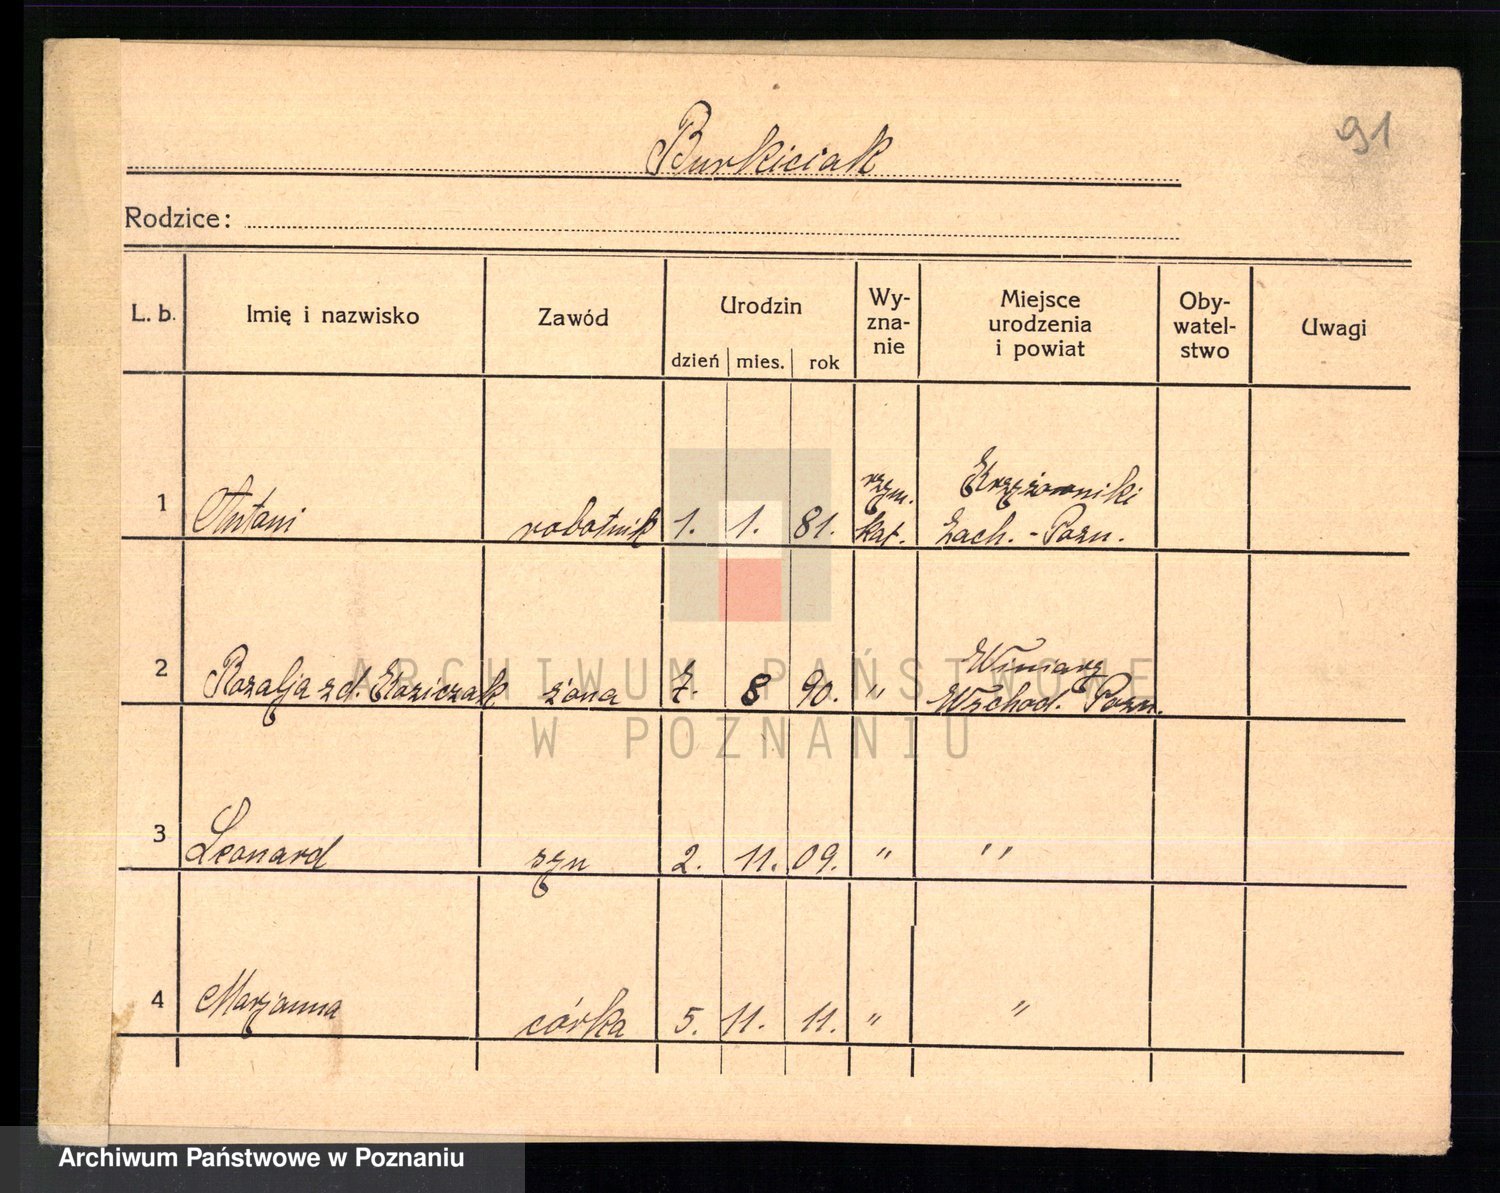 91
Burkiciak
Rodzice:
L. b. Imię i nazwisko Zawód Urodzin Wy- Miejsce Oby- Uwagi
zna- urodzenia watel-
nie i powiat stwo
dzień mies. rok
rzym. Krzyżowniki
1 Antoni robotnik 1. 1. 81. kat. Zach. - Pozn.
Winiary
2 Rozalja zd. Koziczak żona 7. 8 90. " Wschod. Pozn.
3 Leonard syn 2. 11. 09. " "
4 Marjanna córka 5. 11. 11. " "
ARCHIWUM PAŃSTWOWE
W POZNANIU
Archiwum Państwowe w Poznaniu